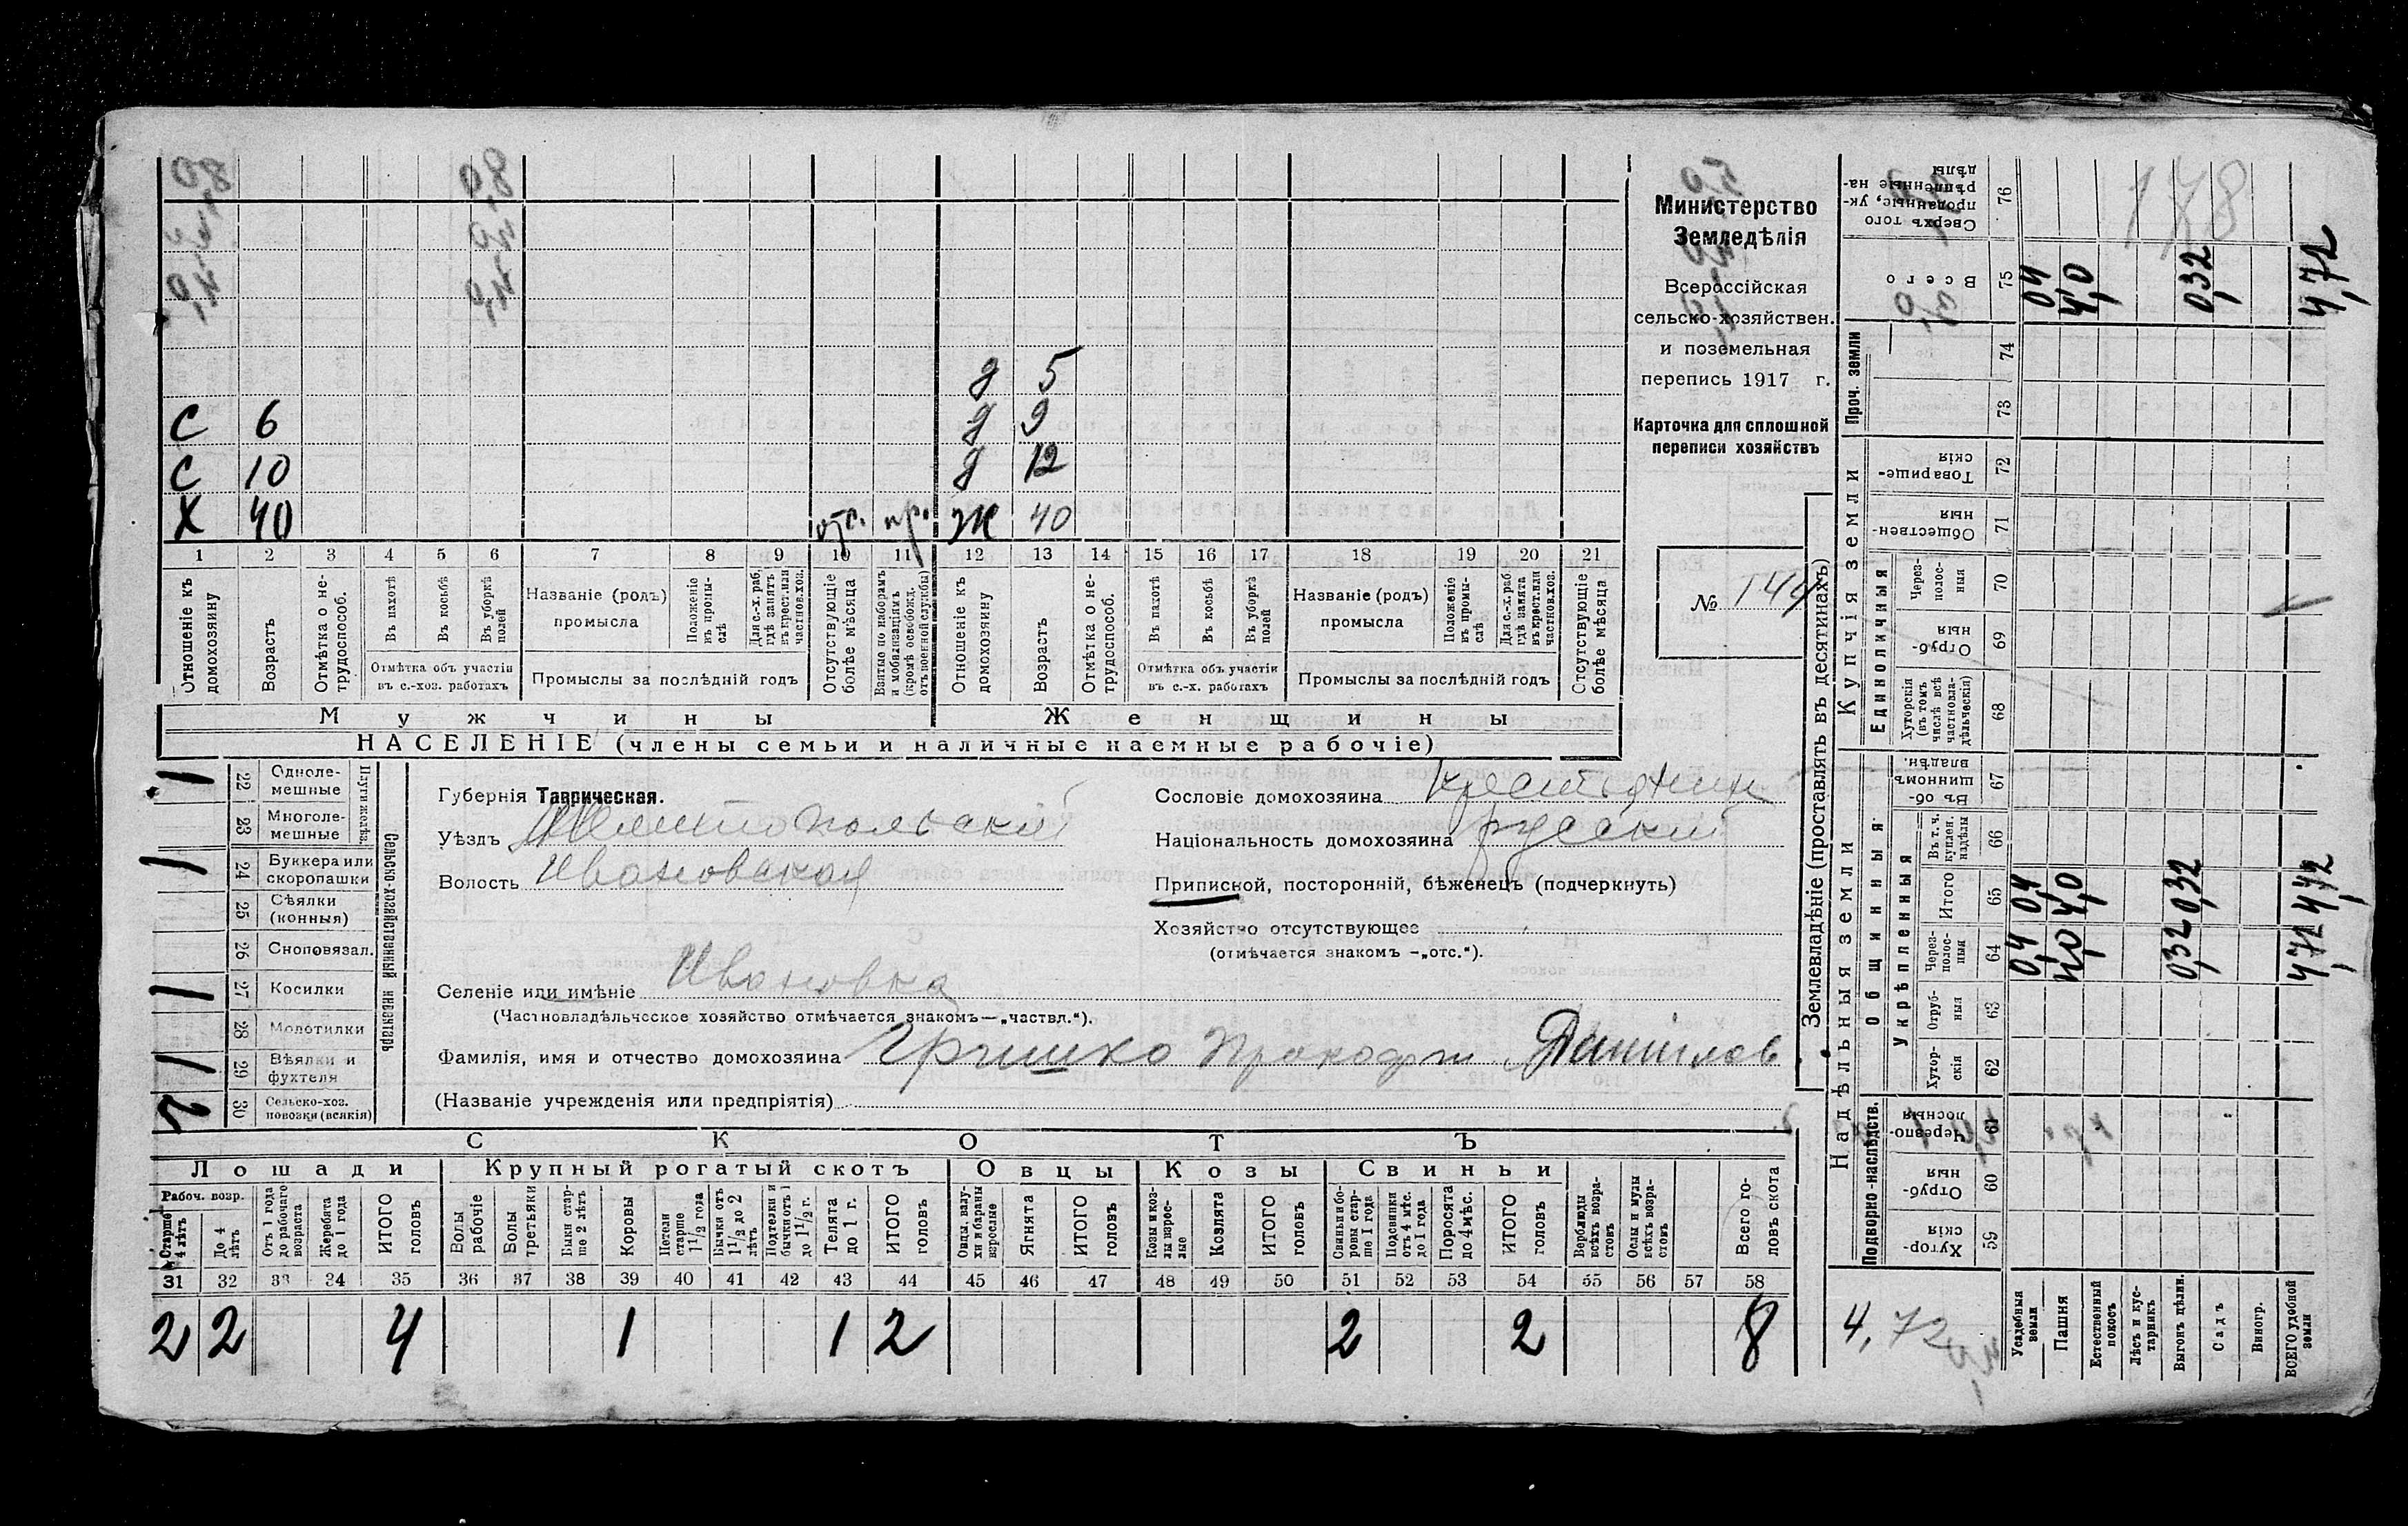 178
Министерство
Земледѣлія
Всероссійская
сельско-хозяйствен.
и поземельная
перепись 1917 г.
Карточка для сплошной
переписи хозяйствъ
№ 144
д 5
С 6 д 9
С 10 д 12
Х 40 отс. пр. Ж 40
1 2 3 4 5 6 7 8 9 10 11 12 13 14 15 16 17 18 19 20 21
Отношеніе къ домохозяину
Возрастъ
Отмѣтка о не-трудоспособ.
Въ пахотѣ
Въ косьбѣ
Въ уборкѣ полей
Отмѣтка объ участіи
въ с.-хоз. работахъ
Названіе (родъ)
промысла
Положеніе въ промы-слѣ
Для с.-х. раб. гдѣ занятъ въ крест. или частнов. хоз.
Промыслы за послѣдній годъ
Отсутствующіе болѣе мѣсяца
Взятые по наборамъ и мобилизаціямъ (кромѣ освобожд. отъ военной службы)
Отношеніе къ домохозяину
Возрастъ
Отмѣтка о не-трудоспособ.
Въ пахотѣ
Въ косьбѣ
Въ уборкѣ полей
Отмѣтка объ участіи
въ с.-х. работахъ
Названіе (родъ)
промысла
Положеніе въ промы-слѣ
Для с.-х. раб. гдѣ занята въ крест. или частнов. хоз.
Промыслы за послѣдній годъ
Отсутствующіе болѣе мѣсяца
Мужчины Женщины
НАСЕЛЕНІЕ (члены семьи и наличные наемные рабочіе)
Сельско-хозяйственный инвентарь
Плуги желѣз.
1 22 Одноле-мешные
23 Многоле-мешные
1 24 Буккера или скоропашки
25 Сѣялки (конныя)
26 Сноповязал.
1 27 Косилки
28 Молотилки
1 29 Вѣялки и фухтеля
2 30 Сельско-хоз. повозки (всякія)
Губернія Таврическая.
Уѣздъ Мелитопольскій
Волость Ивановская
Сословіе домохозяина крестьянин
Національность домохозяина русскій
Приписной, посторонній, бѣженецъ (подчеркнуть)
Хозяйство отсутствующее
(отмѣчается знакомъ —„отс.“).
Селеніе или имѣніе Ивановка
(Частновладѣльческое хозяйство отмѣчается знакомъ—„частвл.“).
Фамилія, имя и отчество домохозяина Гришко Прокофій Данилов
(Названіе учрежденія или предпріятія)
СКОТЪ
Лошади Крупный рогатый скотъ Овцы Козы Свиньи
Рабоч. возр.
Старше 4 лѣтъ
До 4 лѣтъ
Отъ 1 года до рабочаго возраста
Жеребята до 1 года
ИТОГО головъ
Волы рабочіе
Волы третьяки
Быки стар-ше 2 лѣтъ
Коровы
Нетели старше 1 1/2 года
Бычки отъ 1 1/2 до 2 лѣтъ
Подтелки и бычки отъ 1 до 1 1/2 г.
Телята до 1 г.
ИТОГО головъ
Овцы, валу-хи и бараны взрослые
Ягнята
ИТОГО головъ
Козы и коз-лы взрос-лые
Козлята
ИТОГО головъ
Свиньи и бо-ровы стар-ше 1 года
Подсвинки отъ 4 мѣс. до 1 года
Поросята до 4 мѣс.
ИТОГО головъ
Верблюды всѣхъ возра-стовъ
Ослы и мулы всѣхъ возра-стовъ
Всего го-ловъ скота
31 32 33 34 35 36 37 38 39 40 41 42 43 44 45 46 47 48 49 50 51 52 53 54 55 56 57 58
2 2 4 1 1 2 2 2 8
Землевладѣніе (проставлять въ десятинахъ)
Надѣльныя земли
Купчія земли
Проч. земли
Подворно-наслѣдств.
Общинныя
Укрѣпленныя
Единоличныя
59 Хутор-скія
60 Отруб-ныя
61 Черезпо-лосныя
62 Хутор-скія
63 Отруб-ныя
64 Через-полос-ныя
65 Итого
66 Въ т. ч. куплен. надѣлы
67 Въ об-щинномъ владѣн.
68 Хуторскія (въ томъ числѣ всѣ частновла-дѣльческія)
69 Отруб-ныя
70 Через-полос-ныя
71 Обществен-ныя
72 Товарище-скія
73
74
75 Всего
76 Сверхъ того проданные, ук-рѣпленные на-дѣлы
Усадебныя земли 0,4 0,4 0,4
Пашня 4,0 4,0 4,0
Естественный покосъ
Лѣсъ и кус-тарникъ
Выгонъ дѣлин. 0,32 0,32 0,32
Садъ
Виногр.
ВСЕГО удобной земли 4,72 4,72 4,72
4,72